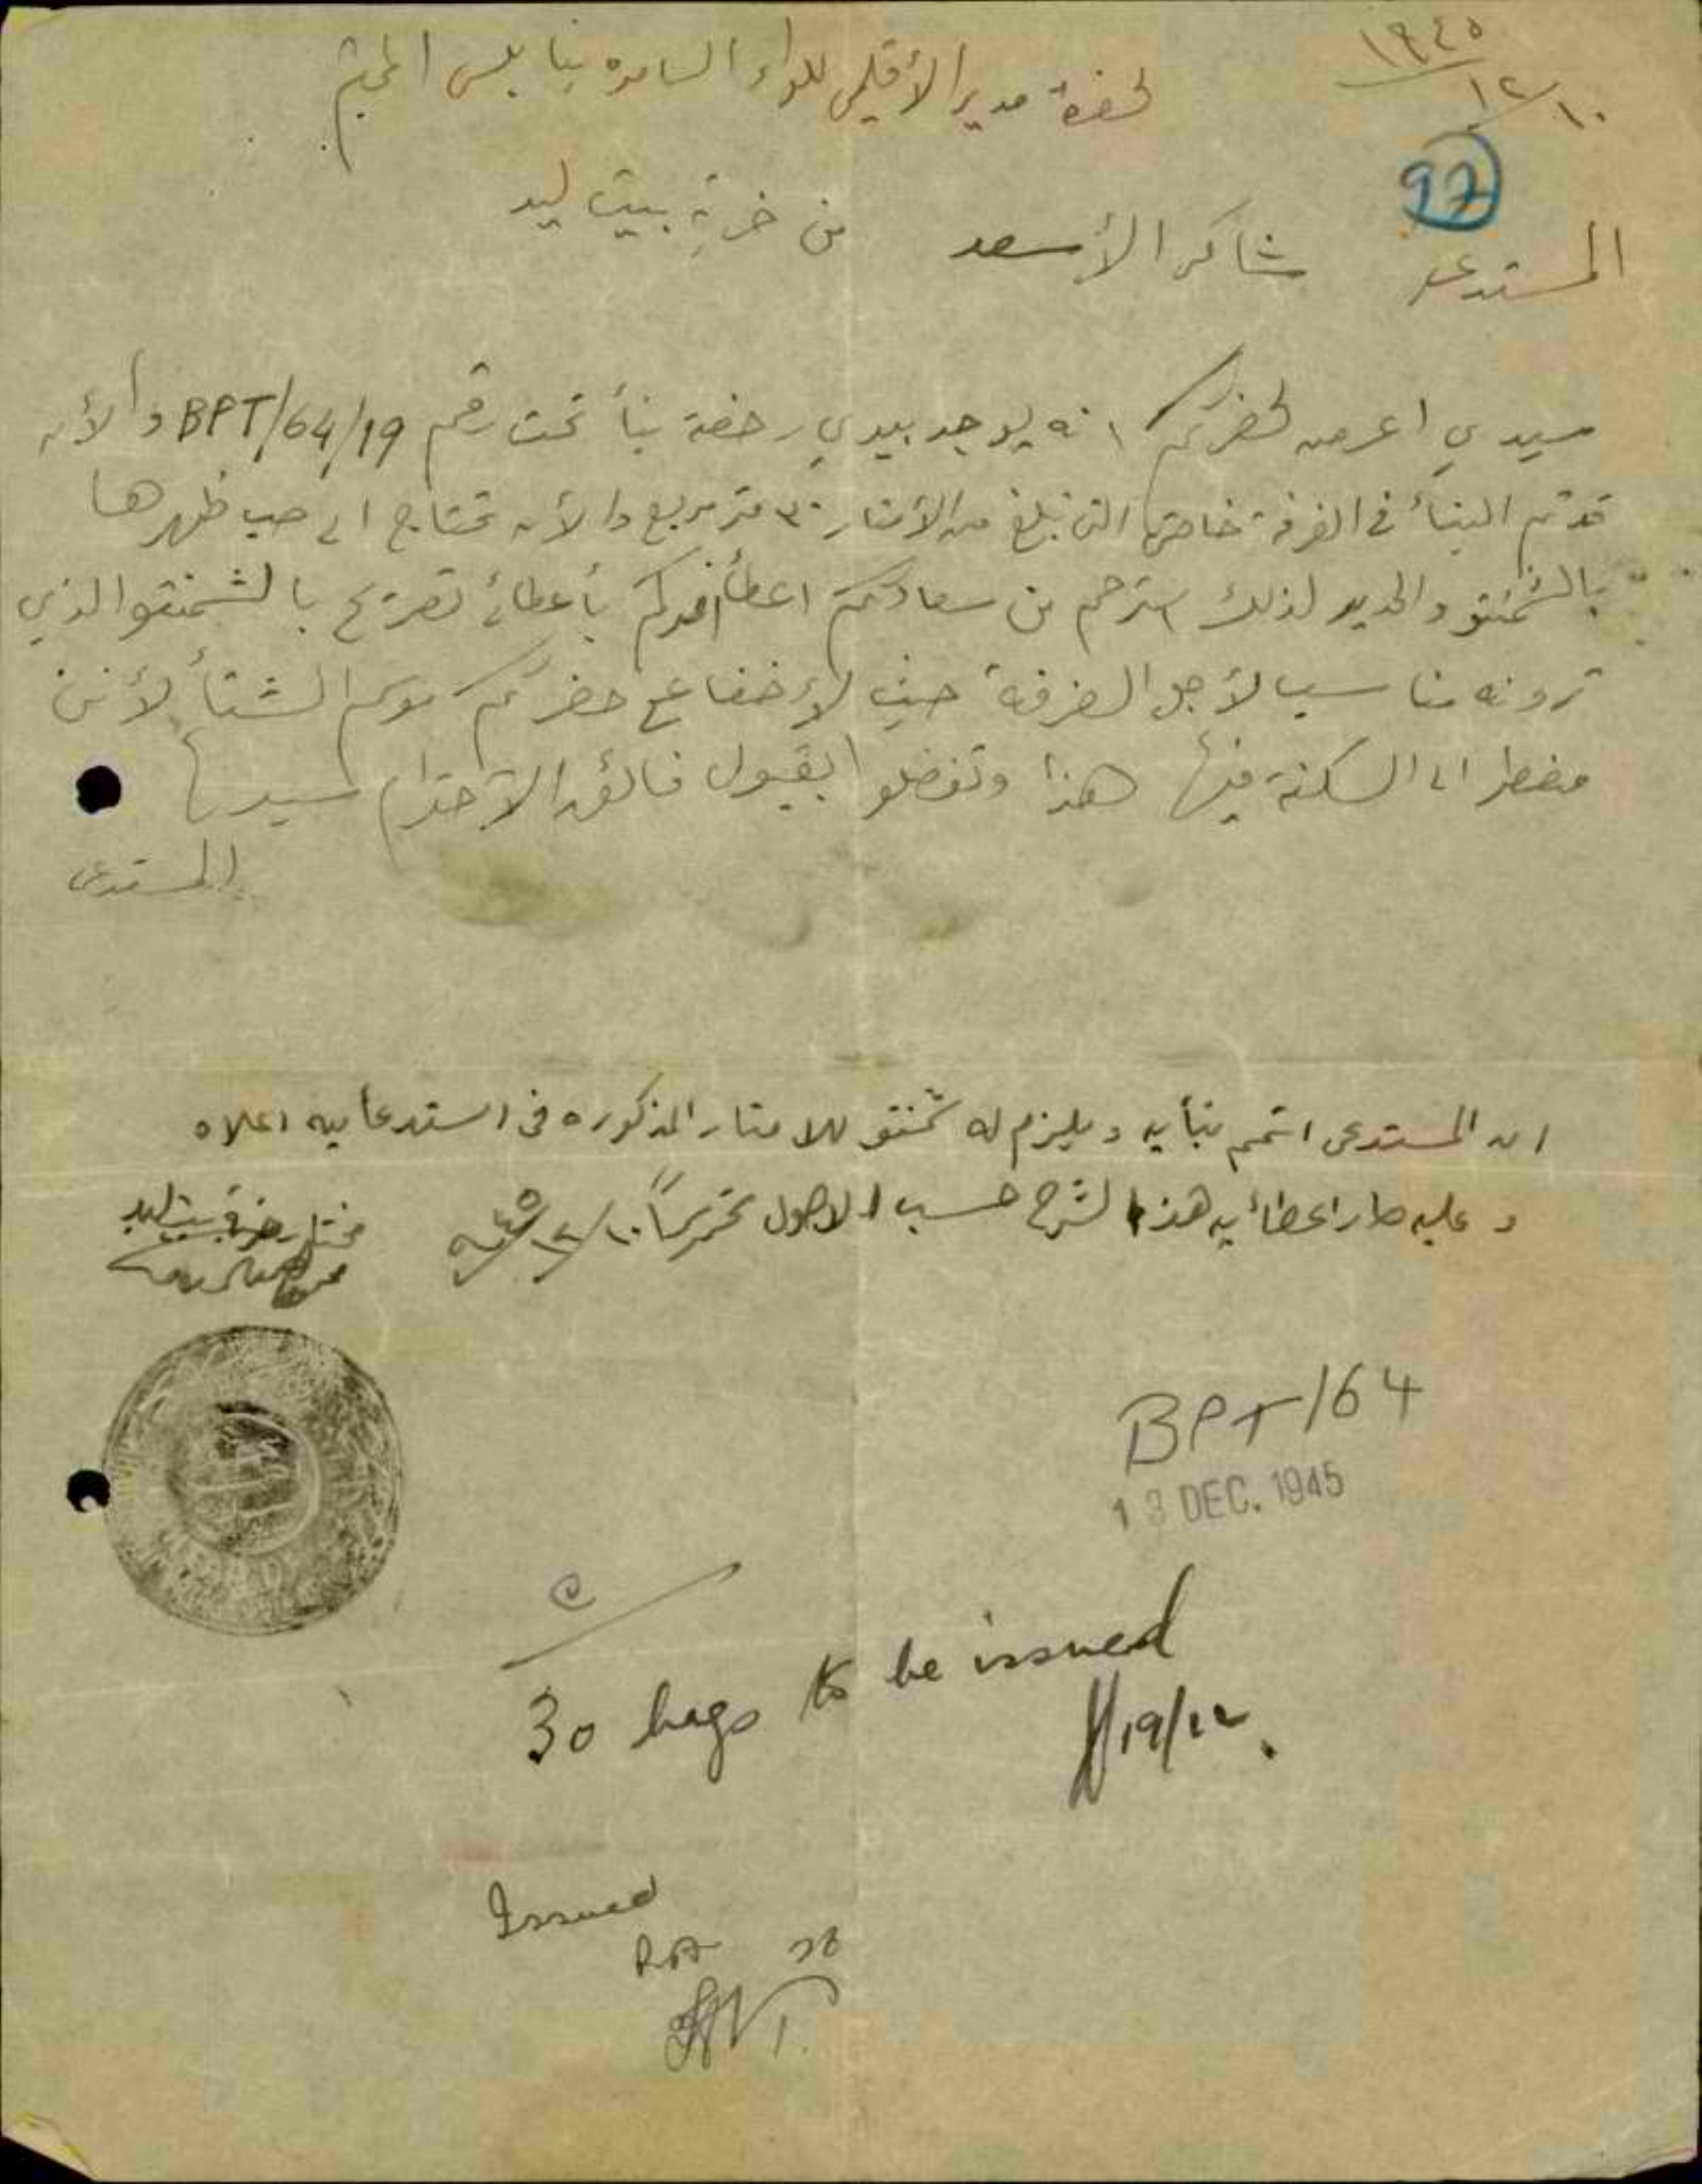 ١٩٤٥
١٢/١٠
لحضرة مدير الأقليمي للواء السامره بنابلس المحترم
97
المستدعي شاكر الأسعد من خربة بيت ليد
سيدي اعرض لحضرتكم انه يوجد بيدي رخصة بنأ تحت رقم BPT/64/19 والأن
قد تم البنأ في الغرفة خاصتي التي تبلغ من الأمتار ٣٠ متر مربع والأن تحتاج الى صب ظهرها
بالشمنتو والحديد لذلك استرحم من سعادتكم اعطأ امركم بأعطائي تصريح بالشمنتو الذي
ترونه مناسب لأجل الغرفة حيث لإخفا ع حضرتكم موسم الشتأ لأنني
مضطر الى السكنة فيها هذا وتفضلوا بقبول فائق الأحترام سيدي
المستدعي
ان المستدعي اتمم بنأيه ويلزم له شمنتو للامتار المذكوره في استدعايه اعلاه
وعليه صار اعطائه هذا الشرح حسب الاصول تحريراً ١٠/١٢/٩٤٥
مختار خربة بيت ليد
BPT/64
13 DEC. 1945
30 bags to be issued
19/12.
Issued